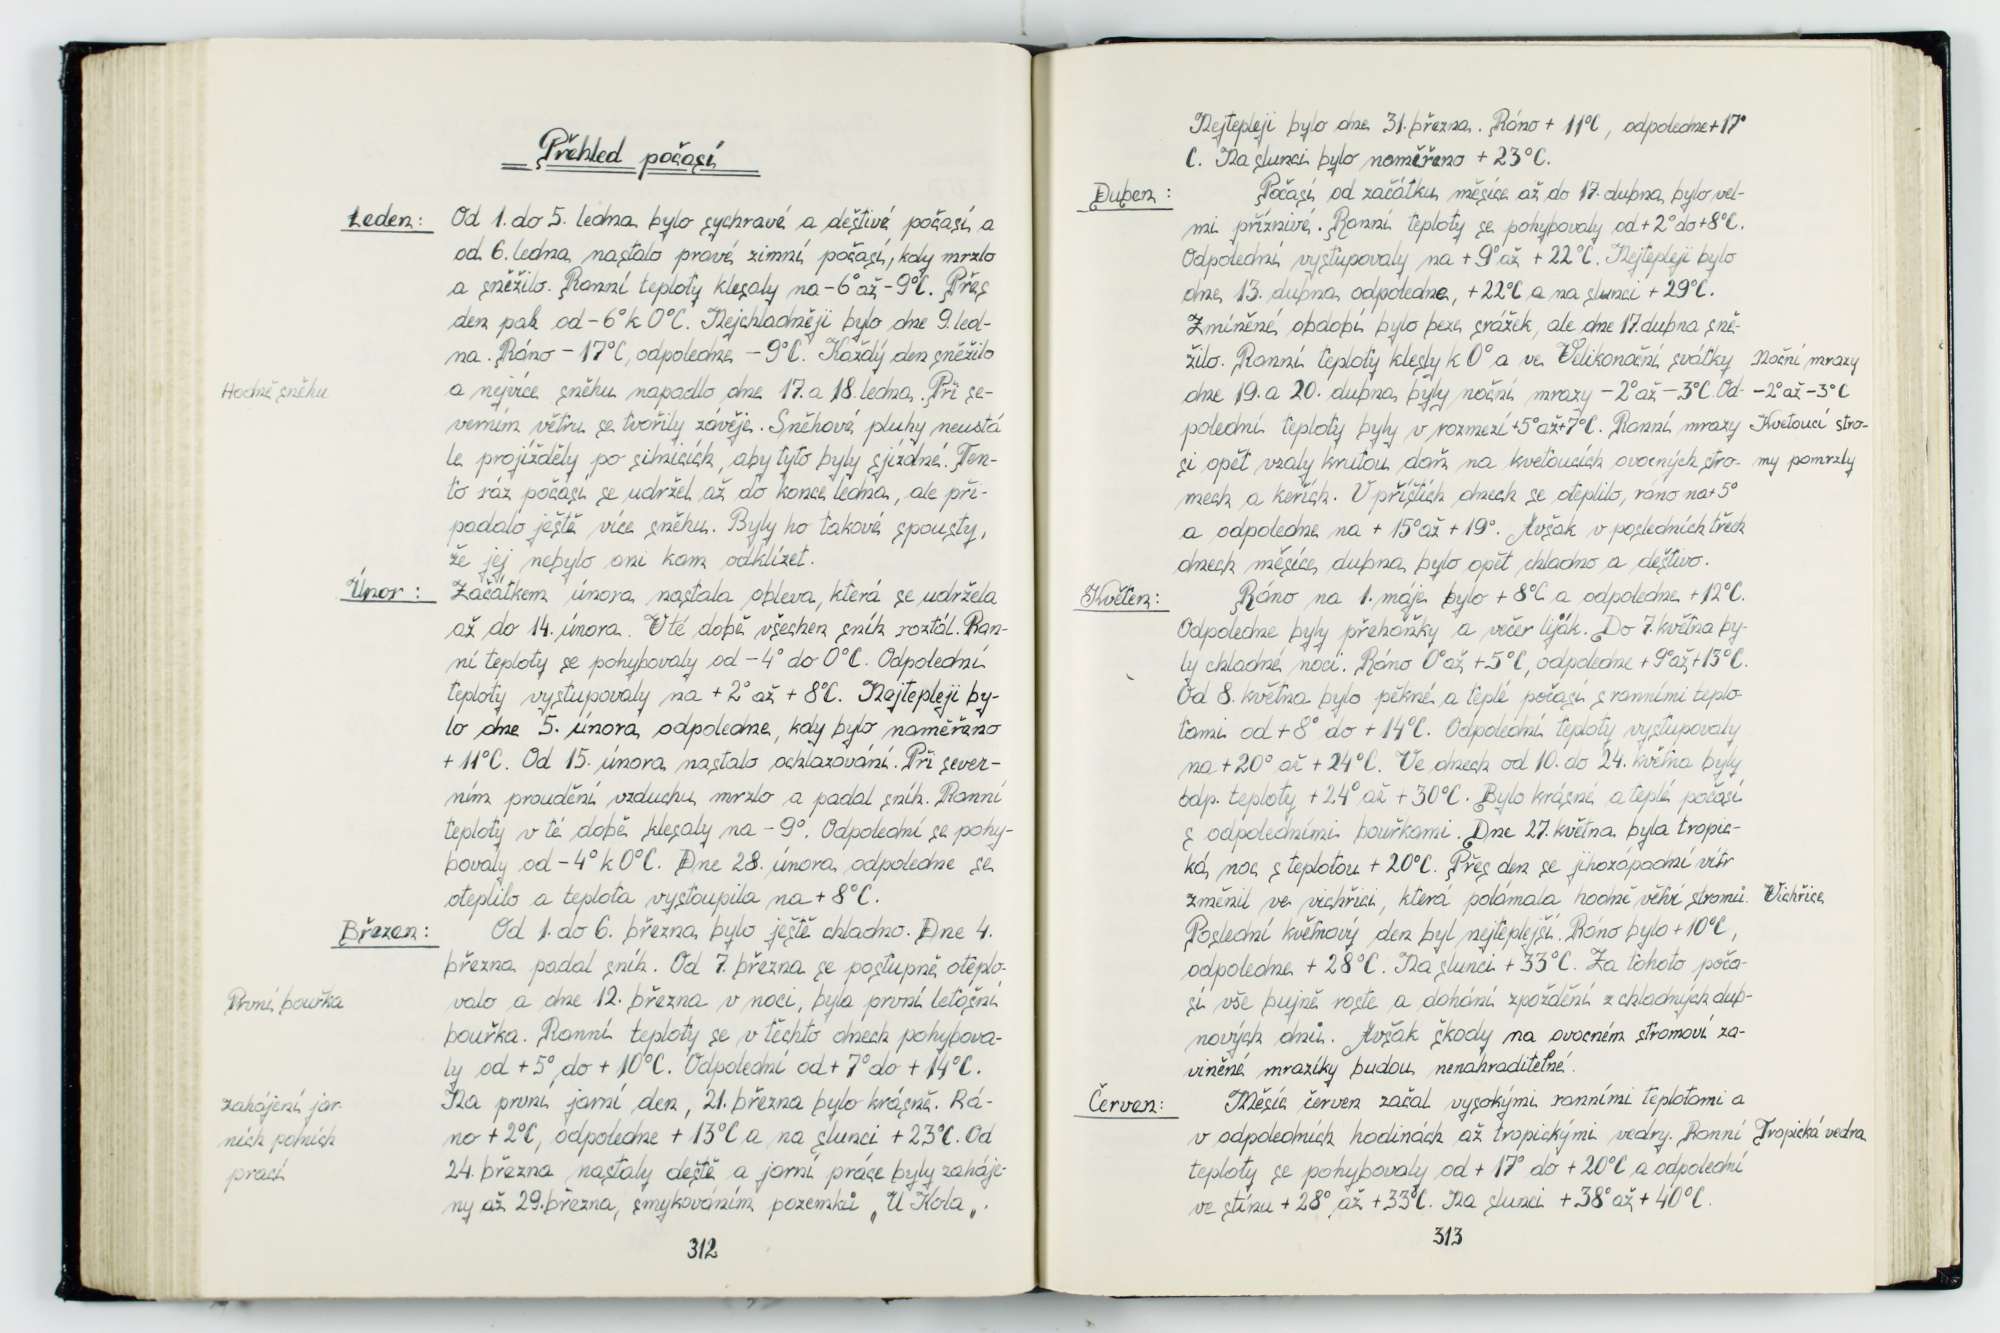 Přehled počasí
Leden: Od 1. do 5. ledna bylo sychravé a deštivé počasí a
od 6. ledna nastalo pravé zimní počasí, kdy mrzlo
a sněžilo. Ranní teploty klesaly na -6° až -9°C. Přes
den pak od -6° k 0°C. Nejchladněji bylo dne 9. led-
na. Ráno -17°C, odpoledne -9°C. Každý den sněžilo
Hodně sněhu a nejvíce sněhu napadlo dne 17. a 18. ledna. Při se-
verním větru se tvořily závěje. Sněhové pluhy neustá
le projížděly po silnicích, aby tyto byly sjízdné. Ten-
to ráz počasí se udržel až do konce ledna, ale při-
padalo ještě více sněhu. Byly ho takové spousty,
že jej nebylo ani kam odklízet.
Únor: Začátkem února nastala obleva, která se udržela
až do 14. února. V té době všechen sníh roztál. Ran-
ní teploty se pohybovaly od -4° do 0°C. Odpolední
teploty vystupovaly na +2° až +8°C. Nejtepleji by-
lo dne 5. února odpoledne, kdy bylo naměřeno
+11°C. Od 15. února nastalo ochlazování. Při sever-
ním proudění vzduchu mrzlo a padal sníh. Ranní
teploty v té době klesaly na -9°. Odpolední se pohy-
bovaly od -4° k 0°C. Dne 28. února odpoledne se
oteplilo a teplota vystoupila na +8°C.
Březen: Od 1. do 6. března bylo ještě chladno. Dne 4.
března padal sníh. Od 7. března se postupně oteplo-
První bouřka valo a dne 12. března v noci, byla první letošní
bouřka. Ranní teploty se v těchto dnech pohybova-
ly od +5° do +10°C. Odpolední od +7° do +14°C.
Zahájení jar- Na první jarní den, 21. března bylo krásně. Rá-
ních polních no +2°C, odpoledne +13°C a na slunci +23°C. Od
prací 24. března nastaly deště a jarní práce byly zaháje-
ny až 29. března, smykováním pozemků „U Kola„.
312
Nejtepleji bylo dne 31. března. Ráno +11°C, odpoledne +17°
C. Na slunci bylo naměřeno +23°C.
Duben: Počasí od začátku měsíce až do 17. dubna bylo vel-
mi příznivé. Ranní teploty se pohybovaly od +2° do +8°C.
Odpolední vystupovaly na +9° až +22°C. Nejtepleji bylo
dne 13. dubna odpoledne, +22°C a na slunci +29°C.
Zmíněné období bylo beze srážek, ale dne 17. dubna sně-
žilo. Ranní teploty klesly k 0° a ve Velikonoční svátky Noční mrazy
dne 19. a 20. dubna byly noční mrazy -2° až -3°C. Od- -2° až -3°C
polední teploty byly v rozmezí +5° až +7°C. Ranní mrazy Kvetoucí stro-
si opět vzaly krutou daň na kvetoucích ovocných stro- my pomrzly
mech a keřích. V příštích dnech se oteplilo, ráno na +5°
a odpoledne na +15° až +19°. Avšak v posledních třech
dnech měsíce dubna bylo opět chladno a deštivo.
Květen: Ráno na 1. máje bylo +8°C a odpoledne +12°C.
Odpoledne byly přeháňky a večer liják. Do 7. května by-
ly chladné noci. Ráno 0° až +5°C, odpoledne +9° až +13°C.
Od 8. května bylo pěkné a teplé počasí s ranními teplo
tami od +8° do +14°C. Odpolední teploty vystupovaly
na +20° až +24°C. Ve dnech od 10. do 24. května byly
odp. teploty +24° až +30°C. Bylo krásné a teplé počasí
s odpoledními bouřkami. Dne 27. května byla tropic-
ká noc s teplotou +20°C. Přes den se jihozápadní vítr
změnil ve vichřici, která polámala hodně větví stromů. Vichřice
Poslední květnový den byl nejteplejší. Ráno bylo +10°C,
odpoledne +28°C. Na slunci +33°C. Za tohoto poča-
sí vše bujně roste a dohání zpoždění z chladných dub-
nových dnů. Avšak škody na ovocném stromoví za-
viněné mrazíky budou nenahraditelné.
Červen: Měsíc červen začal vysokými ranními teplotami a
v odpoledních hodinách až tropickými vedry. Ranní Tropická vedra
teploty se pohybovaly od +17° do +20°C a odpolední
ve stínu +28° až +33°C. Na slunci +38° až +40°C.
313